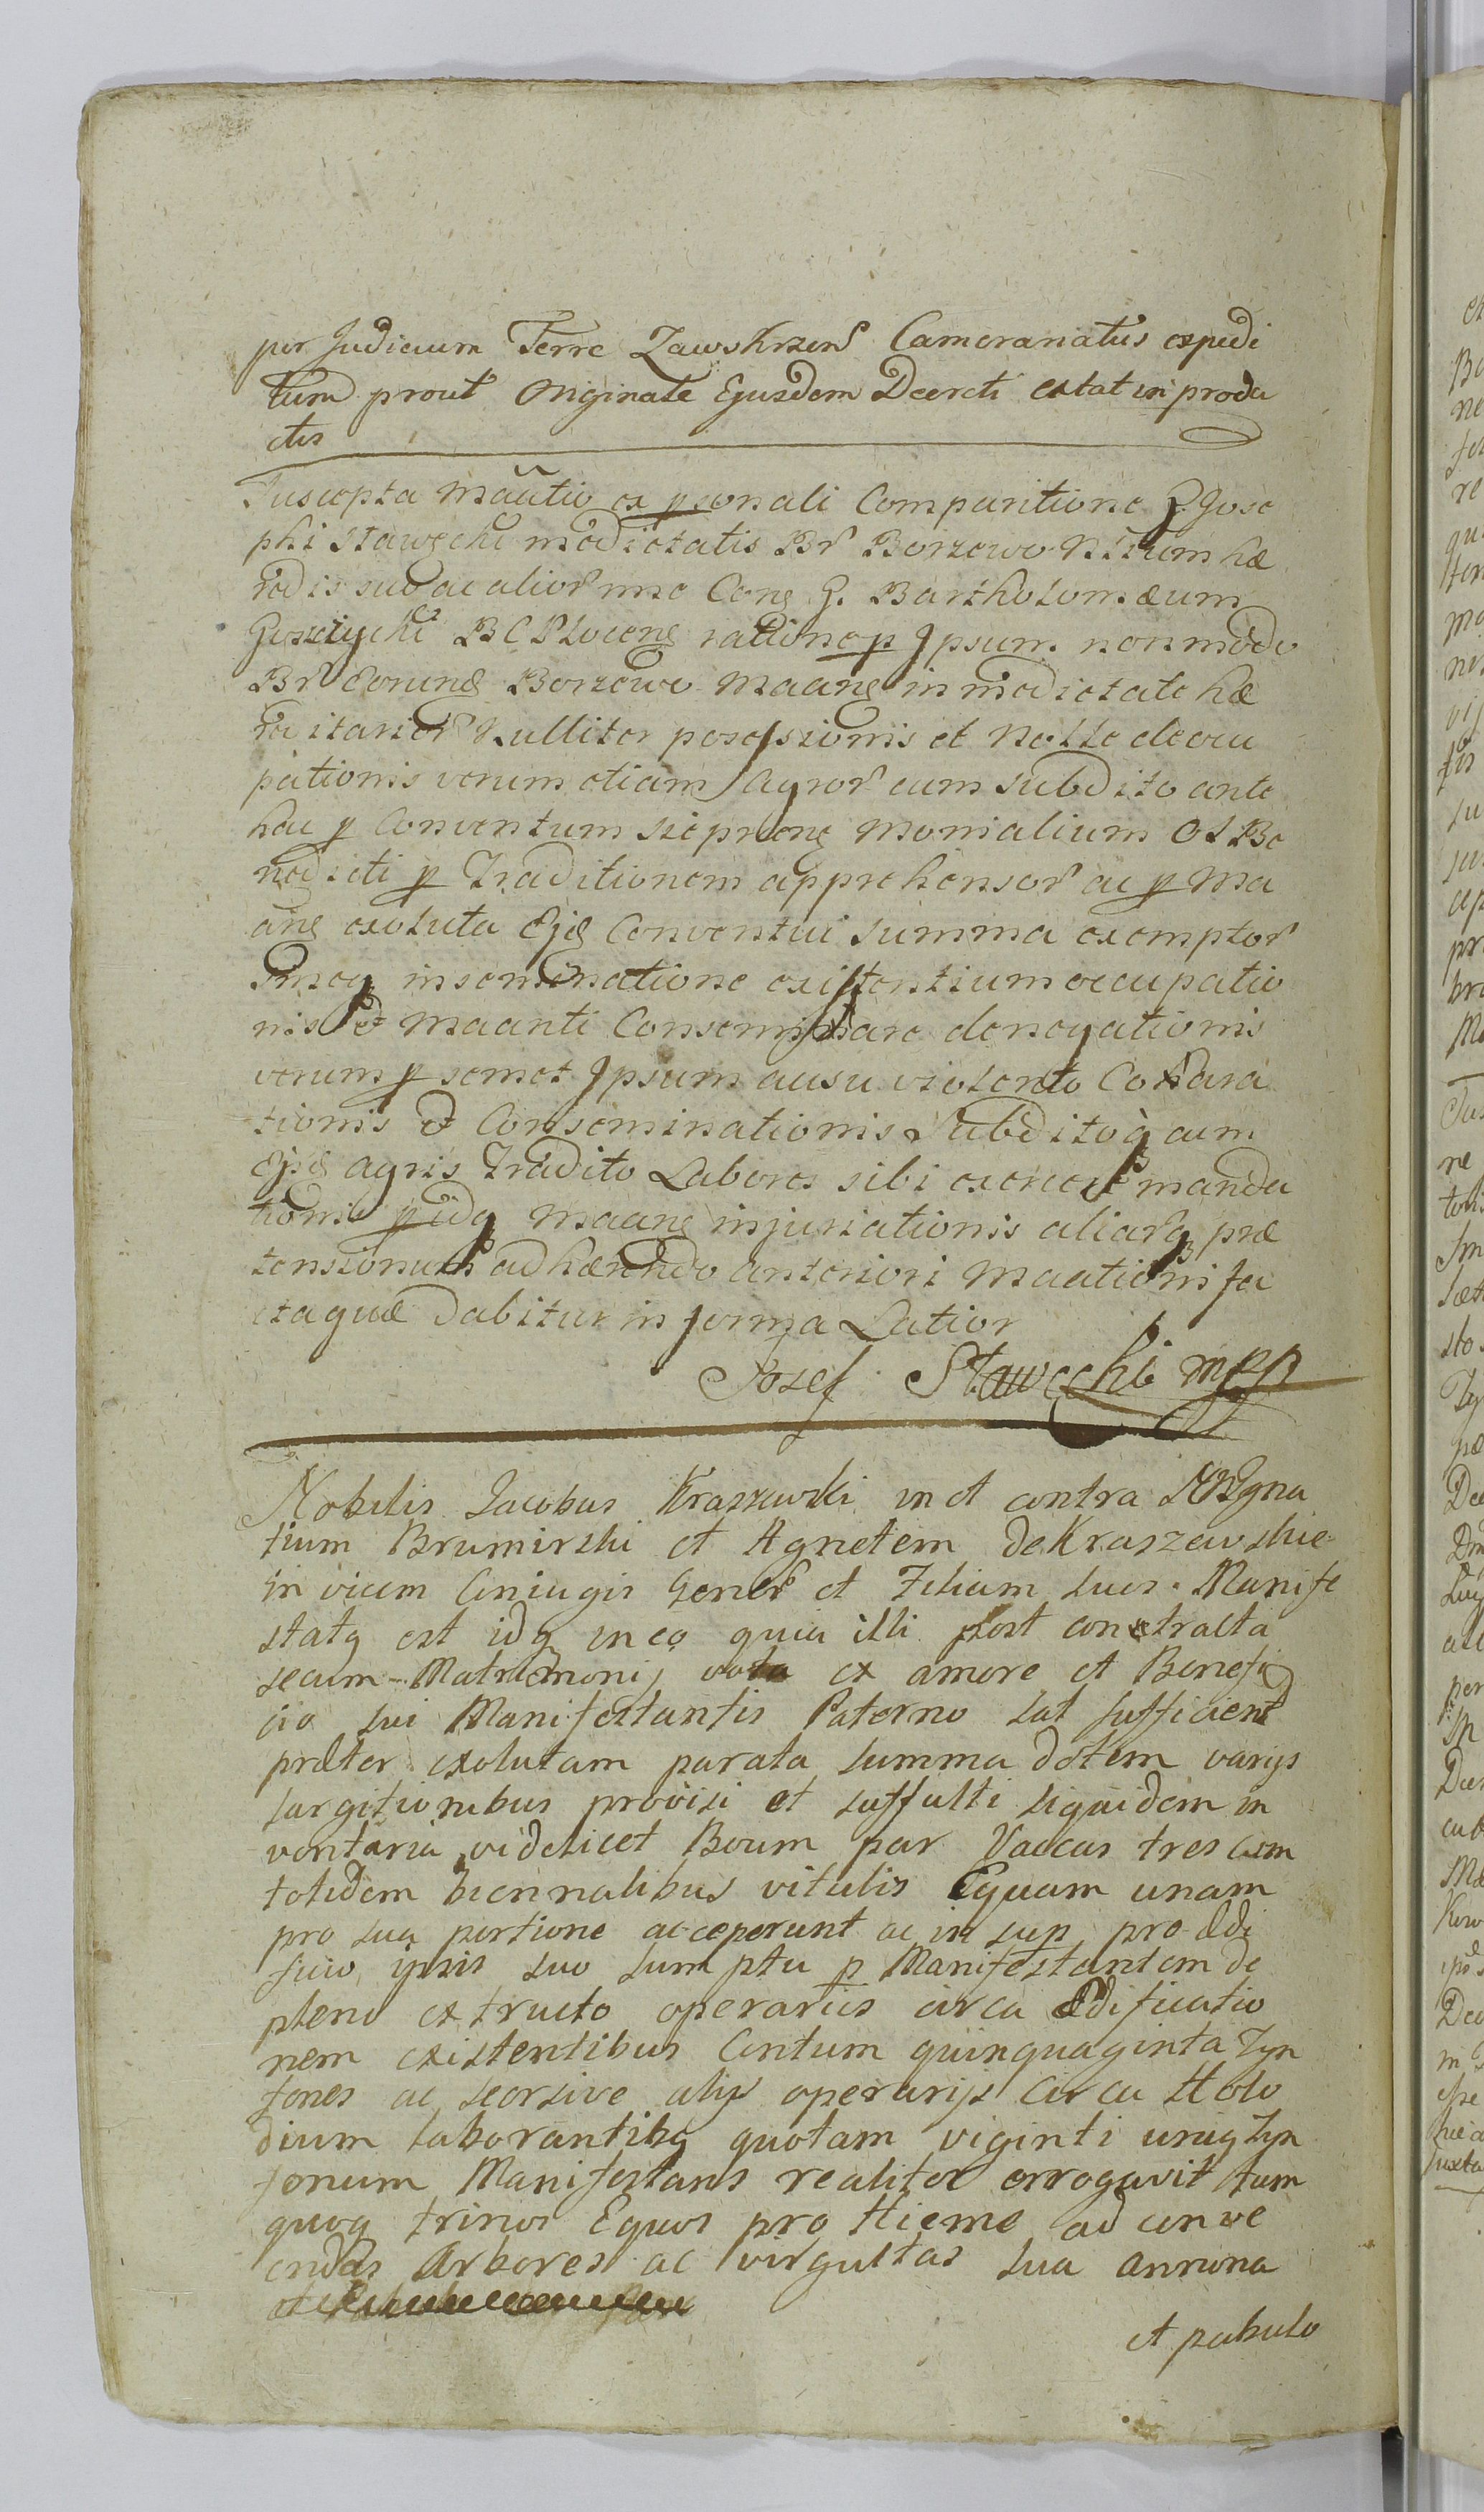 per Judicium Terre Zawskrzens Cameranatus expedi
tum prout Originale Ejusdem Decreti extat in produ
ctis
Suscepta Mãtio ex psonali Comparitione G. Jose
phi Stawecki medietatis Br Borzewo
redis suo ac alior nne Cong G. Bartholomæum
BC Plocens ratione p Ipsum non modo
Br Borzewo Maang in medietate hæ
reditarior Nulliter possessionis et Nolle deocu
pationis verum etiam Agror cum Subdito ante
hac p Conventum Sieprcens Monialium OS Be
nedicti p Traditionem apprehensor ac p Ma
ang exoluta Ejg Conventui Summa exemptor
inseminatione existentium occupatio
nis et Maanti Conseminare denegationis
verum p semet Ipsum ausu violento Coxara
tionis et Conseminationis Subditoq cum
Ejsg agris Tradito Labores sibi exercere manda
tionis pidq Maang injuriationis aliarq præ
tensionum adhærendo anteriori Maationi fa
cta quæ dabitur in forma Latior
Josef Stawecki mpp
Nobilis Jacobus Kraszewski in et contra Igna
tium Brumirski et Agnetem de Kraszewskie
in vicem Coniugis Gener et Filiam suos. Manife
statq est idq in eo quia illi post contracta
secum Matrimonij vota ex amore et Benefi
cio sui Manifestantis Paterno sat sufficient
præter exolutam parata summa dotem varijs
largitionibus provisi et suffulti siquidem in
ventaria videlicet Boum par Vaccas tres cum
totidem biennalibus vitulis Equam unam
pro sua portione acceperunt ac in sup pro Ædi
ficio ipsis suo sumptu p Manifestantem de
pleno extructo operariis circa Ædificatio
nem existentibus Centum quinquaginta Tyn
fones ac seorsive alijs operarijs circa Holo
dium laborantibq quotam viginti unig Tyn
fonum Manifestans realiter errogavit tum
quoq trinos Equos pro Hieme ad conve
endas Arbores ac virgultas sua annona
et pabulo